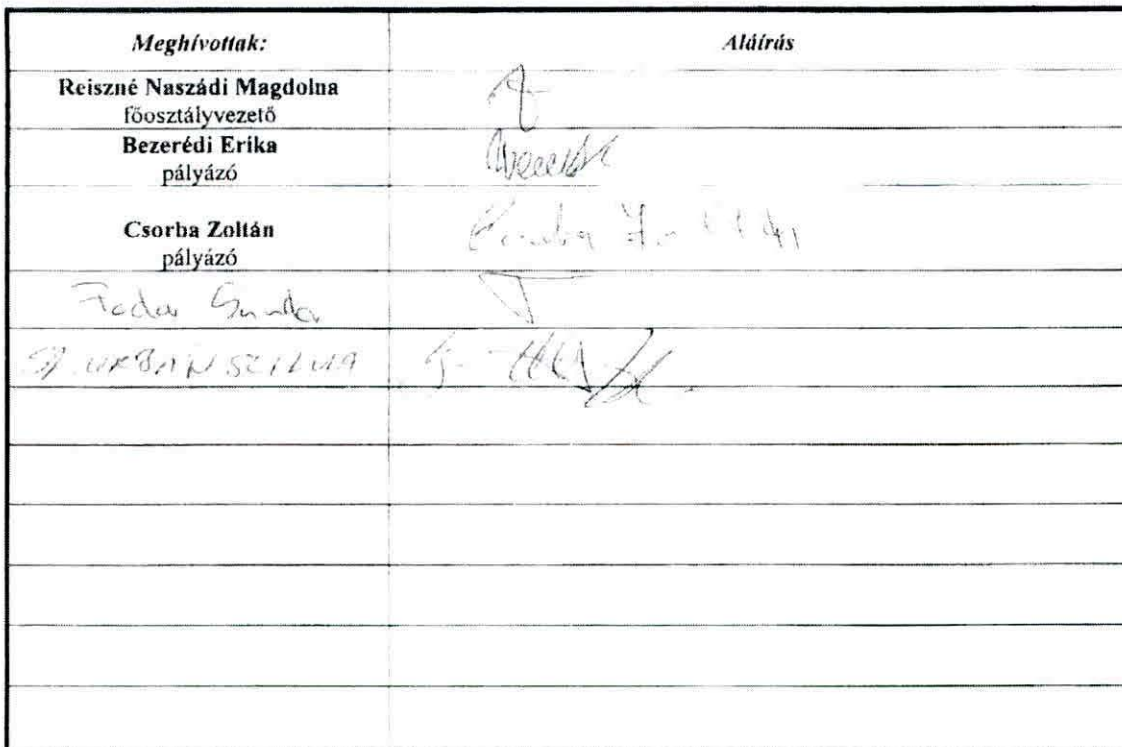 Meghívottak: Aláírás
Reiszné Naszádi Magdolna
főosztályvezető
Bezerédi Erika
pályázó
Csorba Zoltán
pályázó
Csorba Zoltán
Fodor
URBÁN SZILVIA